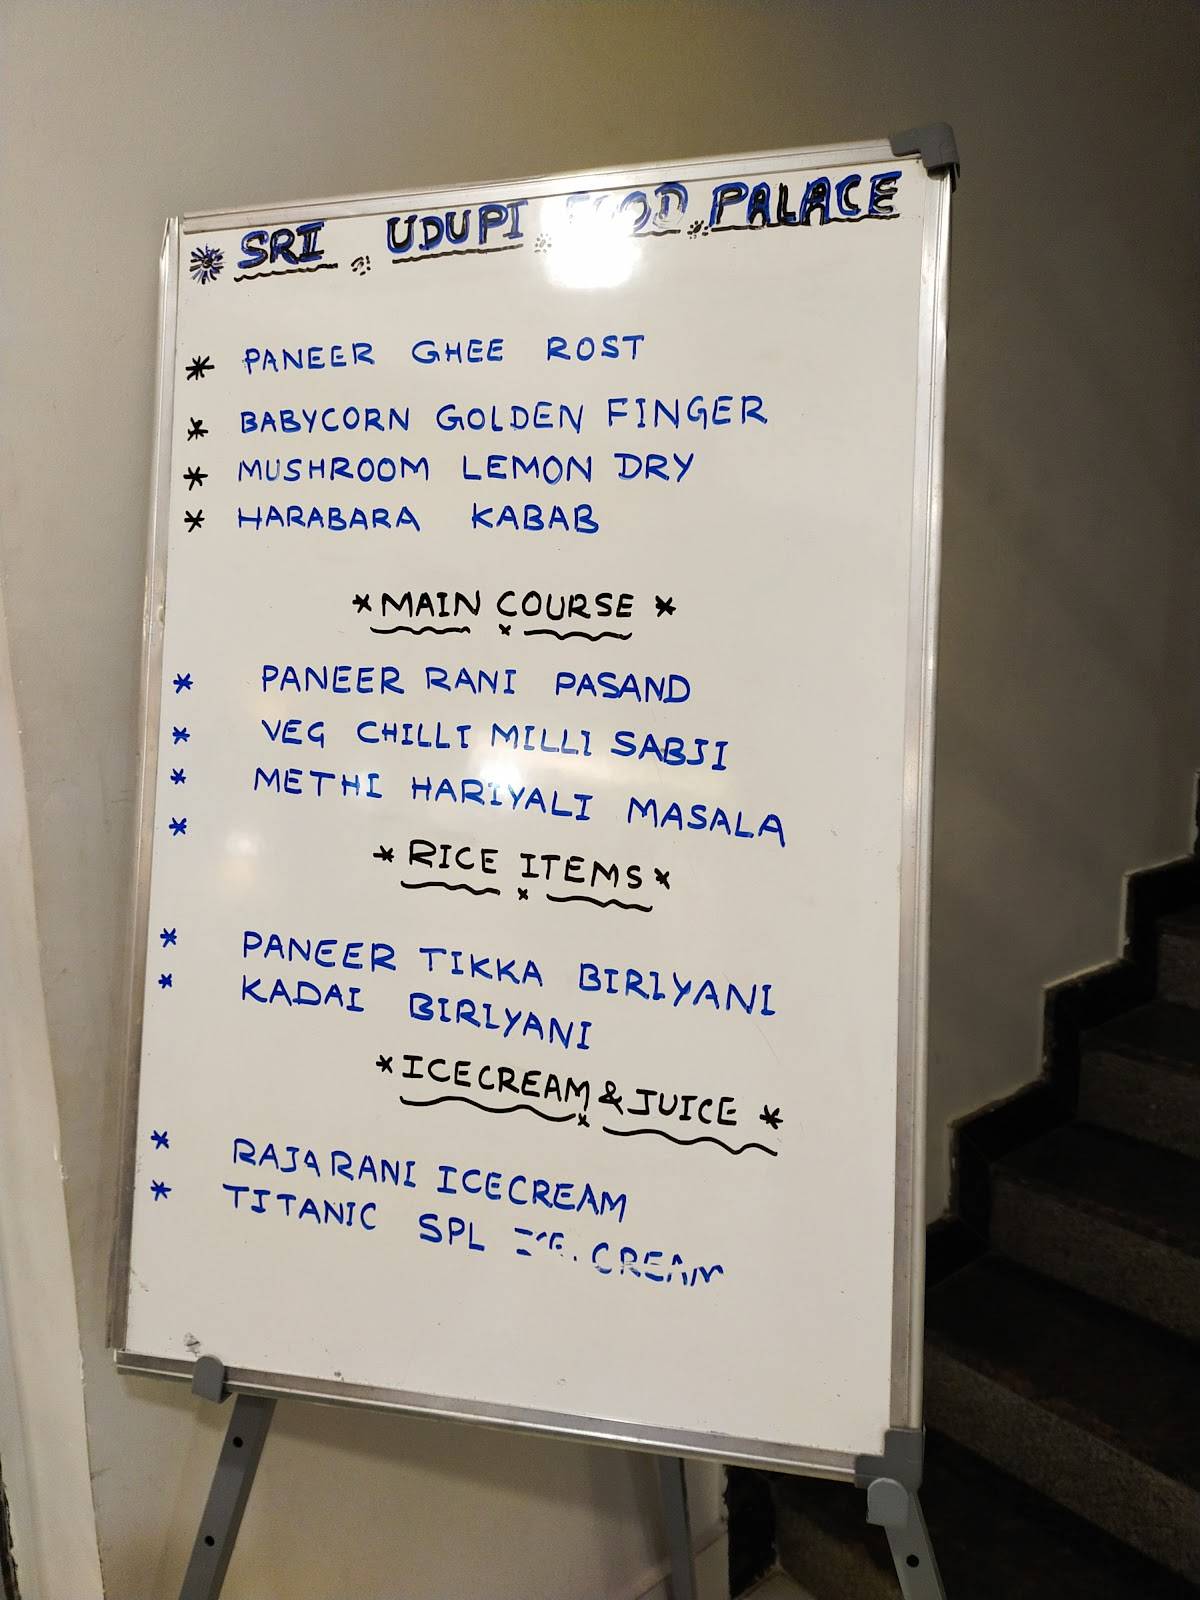 SRI UDUPI FOOD PALACE
* PANEER GHEE ROST
* BABYCORN GOLDEN FINGER
* MUSHROOM LEMON DRY
* HARABARA KABAB
* MAIN COURSE *
* PANEER RANI PASAND
* VEG CHILLI MILLI SABJI
* METHI HARIYALI MASALA
*
* RICE ITEMS *
* PANEER TIKKA BIRIYANI
* KADAI BIRIYANI
* ICECREAM & JUICE *
* RAJA RANI ICECREAM
* TITANIC SPL ICE.CREAM